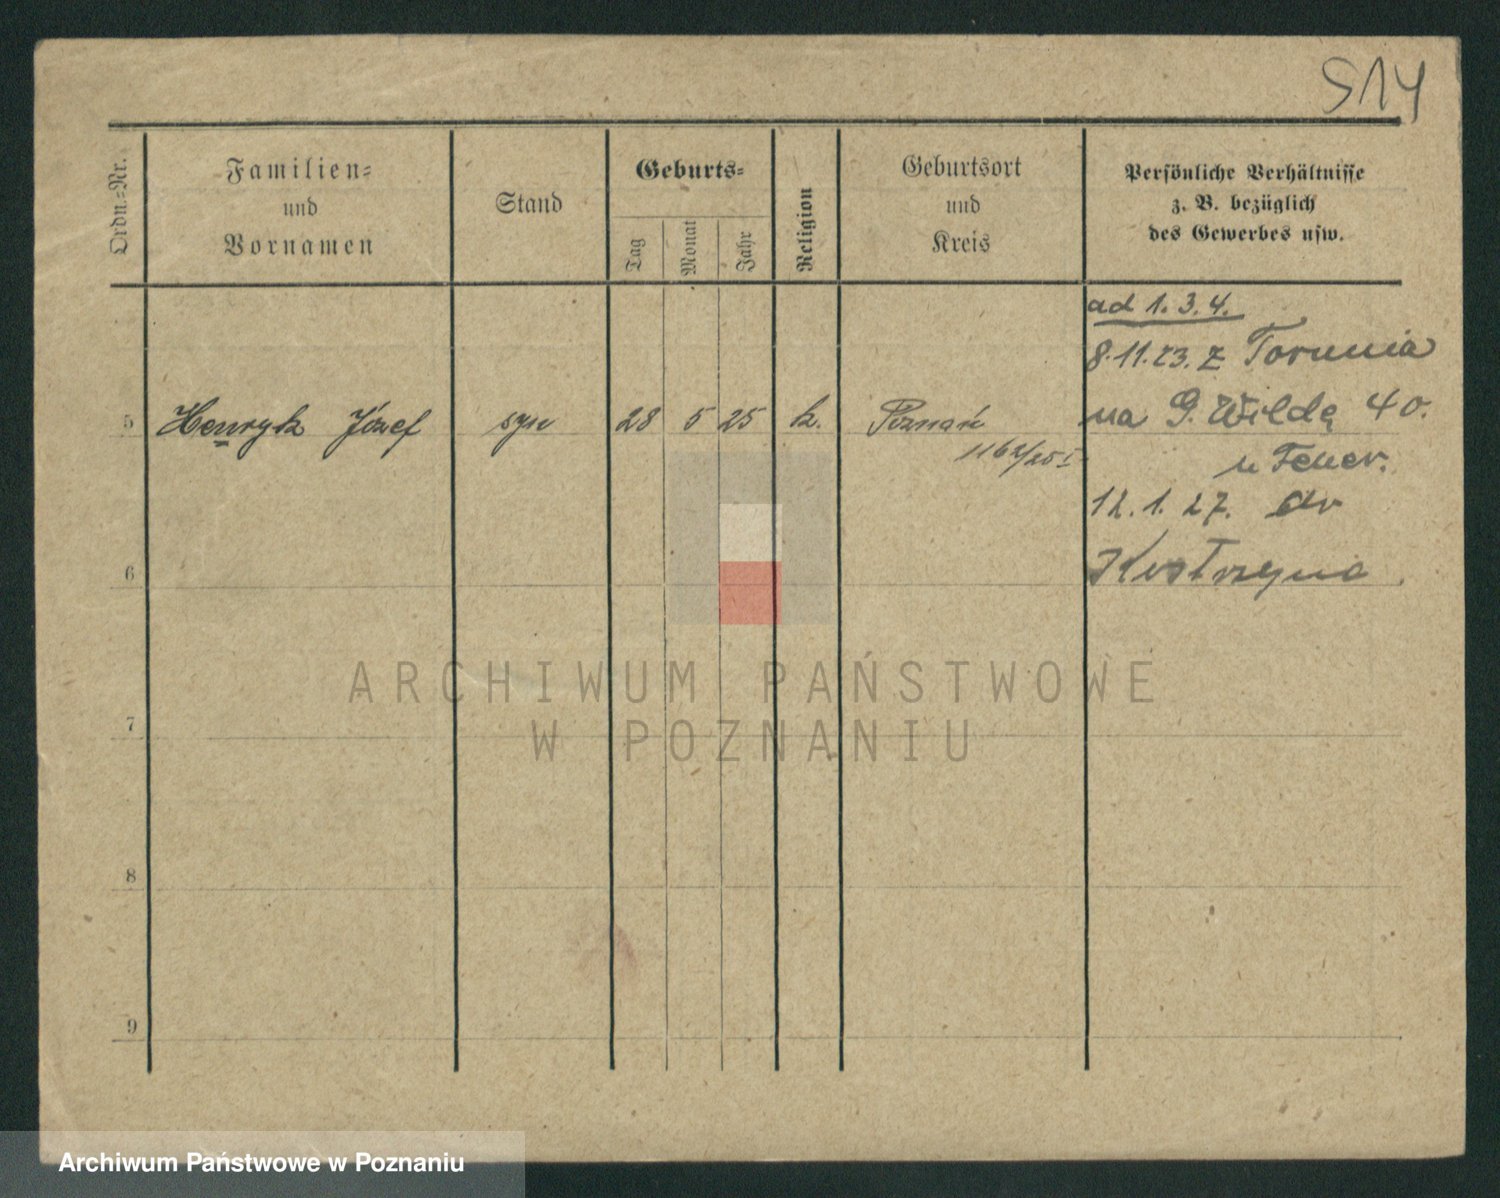 514
Ordn.-Nr.
Familien-
und
Vornamen
Stand
Geburts-
Tag
Monat
Jahr
Religion
Geburtsort
und
Kreis
Persönliche Verhältnisse
z. B. bezüglich
des Gewerbes usw.
ad 1. 3. 4.
8.11.23. z Torunia
na G. Wildę 40.
12.1.27. do
Kostrzyna
5 Henryk Józef syn 28 5 25 k. Poznań
1162/25 I
6
7
8
9
ARCHIWUM PAŃSTWOWE
W POZNANIU
Archiwum Państwowe w Poznaniu